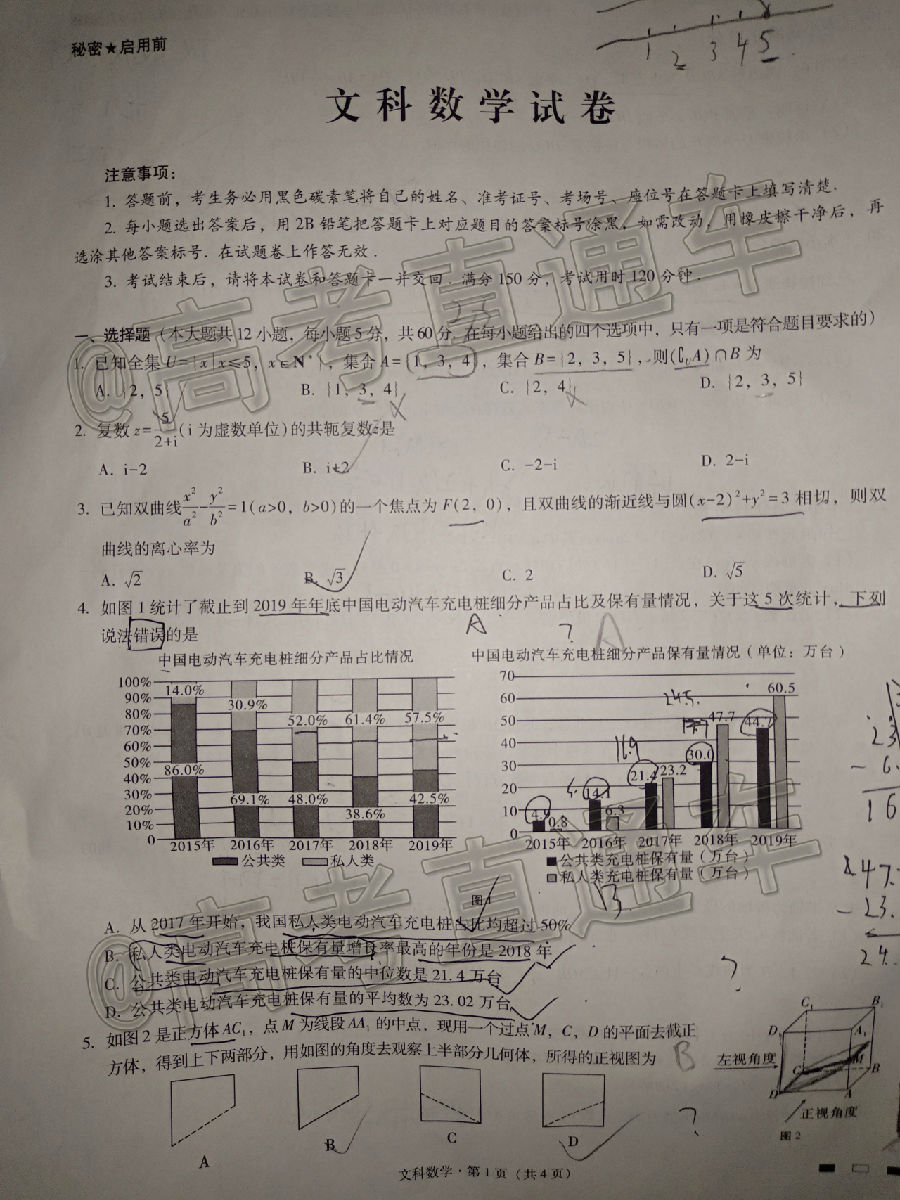 秘密★启用前
1 2 3 4 5
文科数学试卷
注意事项：
1. 答题前，考生务必用黑色碳素笔将自己的姓名、准考证号、考场号、座位号在答题卡上填写清楚．
2. 每小题选出答案后，用2B铅笔把答题卡上对应题目的答案标号涂黑．如需改动，用橡皮擦干净后，再
选涂其他答案标号．在试题卷上作答无效．
3. 考试结束后，请将本试卷和答题卡一并交回．满分150分，考试用时120分钟．
@高考直通车
一、选择题（本大题共12小题，每小题5分，共60分．在每小题给出的四个选项中，只有一项是符合题目要求的）
1. 已知全集U={x|x≤5，x∈N*}，集合A={1，3，4}，集合B={2，3，5}，则(∁UA)∩B为
A. {2，5} B. {1，3，4} C. {2，4} D. {2，3，5}
2. 复数z=5/(2+i)(i为虚数单位)的共轭复数z̄是
A. i-2 B. i+2 C. -2-i D. 2-i
3. 已知双曲线x²/a²-y²/b²=1(a>0，b>0)的一个焦点为F(2，0)，且双曲线的渐近线与圆(x-2)²+y²=3相切，则双
曲线的离心率为
A. √2 B. √3 C. 2 D. √5
4. 如图1统计了截止到2019年年底中国电动汽车充电桩细分产品占比及保有量情况，关于这5次统计，下列
说法错误的是
A ? A
中国电动汽车充电桩细分产品占比情况
100%
90%
80%
70%
60%
50%
40%
30%
20%
10%
0
14.0% 30.9% 52.0% 61.4% 57.5%
86.0% 69.1% 48.0% 38.6% 42.5%
2015年 2016年 2017年 2018年 2019年
公共类 私人类
中国电动汽车充电桩细分产品保有量情况（单位：万台）
70
60
50
40
30
20
10
0
4.9 0.8 14.1 6.3 21.4 23.2 30.0 47.7 44.7 60.5
24.5
16.9
2015年 2016年 2017年 2018年 2019年
公共类充电桩保有量（万台）
私人类充电桩保有量（万台）
图1
A. 从2017年开始，我国私人类电动汽车充电桩占比均超过50%
B. 私人类电动汽车充电桩保有量增长率最高的年份是2018年
C. 公共类电动汽车充电桩保有量的中位数是21.4万台
D. 公共类电动汽车充电桩保有量的平均数为23.02万台
@高考直通车
?
5. 如图2是正方体AC₁，点M为线段AA₁的中点，现用一个过点M，C，D的平面去截正
方体，得到上下两部分，用如图的角度去观察上半部分几何体，所得的正视图为
B
A B C D
?
左视角度
C₁ B₁
D₁ A₁
M
C B
D A
正视角度
图2
文科数学·第1页（共4页）